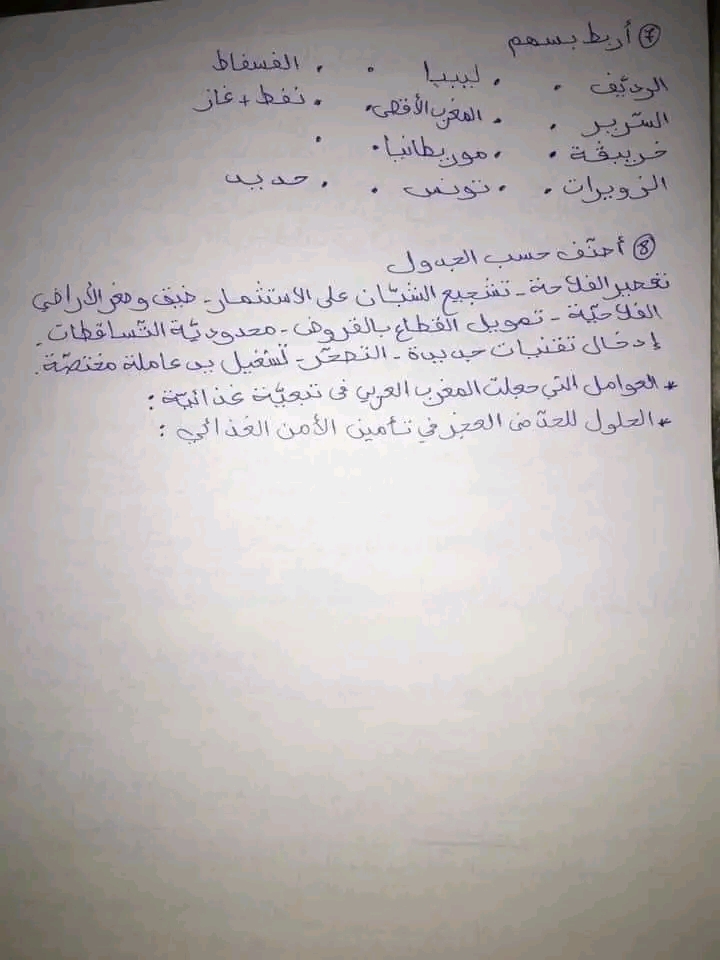 ⑦ أربط بسهم
الرديف . . ليبيا . . الفسفاط
السرير . . المغرب الأقصى . . نفط + غاز
خريبقة . . موريطانيا . .
الزويرات . . تونس . . حديد
⑧ أصنّف حسب الجدول
تعصير الفلاحة - تشجيع الشبّان على الاستثمار - ضيق وصغر الأراضي
الفلاحيّة - تمويل القطاع بالقروض - محدوديّة التّساقطات.
إدخال تقنيات جديدة - التصحّر - تشغيل يد عاملة مختصّة.
* العوامل التي جعلت المغرب العربي في تبعيّة غذائيّة :
* الحلول للحدّ من العجز في تأمين الأمن الغذائي :